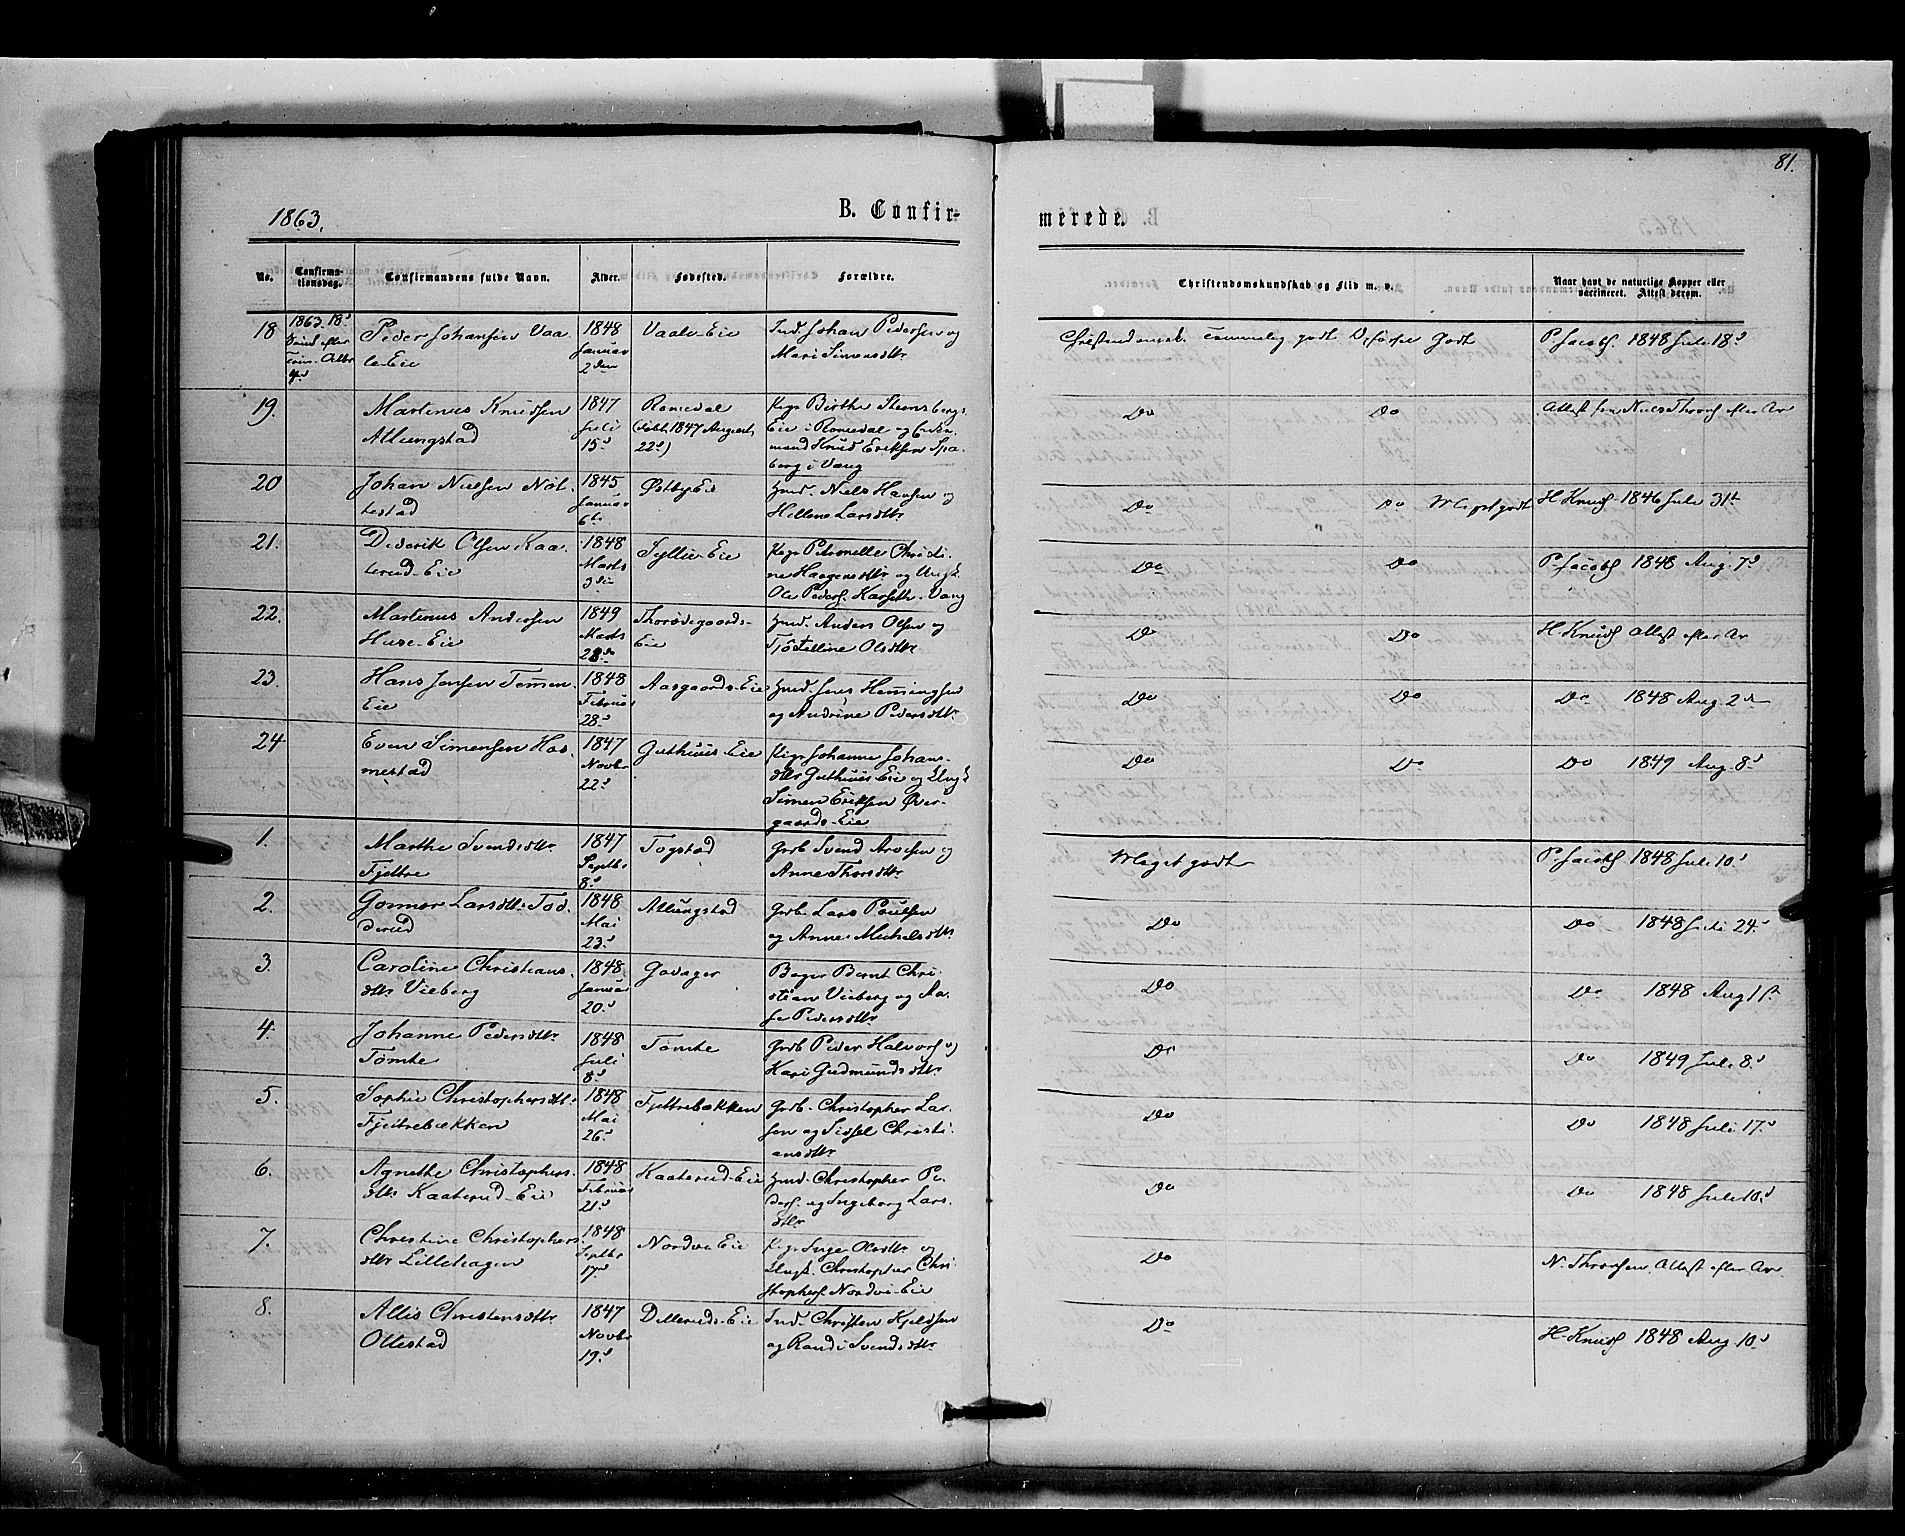 81.
1863.
B. Confir-
merede.
No.
Confirma-
tionsdag.
Confirmandens fulde Navn.
Alder.
Fødested.
Forældre.
Christendomskundskab og Flid m. v.
Naar havt de naturlige Kopper eller
vaccineret. Attest derom.
18
1863. 18d
Sønd. efter
Trin. Octbr
4d
Peder Johansen Vaa-
le-Eie
1848
Januar
2den
Vaale-Eie
Ind. Johan Pedersen og
Mari Simensdttr
Christendomsk. temmelig godt Opførsel Godt
P. Jacobs. 1848 Juli 18d
19.
Martinus Knudsen
Atlungstad
1847
Juli
15d
Romedal
(døbt 1847 August
22d)
Pige Birthe Steensbergs
Eie i Romedal og Enke-
mand Knud Eriksen Spa-
berg i Vang
Do
Do
Attest fra Niels Thores. efter Ar
20
Johan Nielsen Not-
testad
1845
Januar
6te
Østby Eie
Hmd. Niels Hansen og
Hellene Larsdttr
Do
Do
Meget godt
H. Knuds. 1846 Juli 31te
21.
Diderik Olsen Kaa-
terud-Eie
1848
Marts
3die
Syllie-Eie
Pige Petronelle Christi-
ne Haagensdttr og Ungk.
Ole Peders. Karseth. Vang
Do
Do
P. Jacobs. 1848 Aug. 7d
22.
Martinus Andersen
Huse-Eie
1849
Marts
28de
Thorødegaards-
Eie
Hmd. Anders Olsen og
Olsdttr
Do
Do
H. Knuds. Attest efter Ar
23.
Hans Jensen Tommen
Eie
1848
Februar
28d
Aasgaards-Eie
Hmd. Jens Hemingsen
og Andrine Pedersdttr
Do
Do
Do 1848 Aug. 2den
24
Even Simensen Hos-
mestad
1847
Novbr
22d
Guthuus-Eie
Pige Johanne Johans-
dttr Guthuus Eie og Ungk.
Simen Eriksen Øver-
gaards-Eie
Do
Do
Do 1849 Aug. 8d
1.
Marthe Svendsdttr
Fjettre
1847
Septbr
8d
Togstad
Grdb Svend Arvesen og
Anne Thorsdttr
Meget godt
P. Jacobs. 1848 Juli 10d
2.
Gonnor Larsdttr Tod-
derud
1848
Mai
23d
Atlungstad
Grdb. Lars Poulsen
og Anne Michelsdttr
Do
Do 1848 Juli 24d
3
Caroline Christians-
dttr Vieberg
1848
Januar
20d
Govager
Bager Bernt Chri-
stian Vieberg og Aa-
se Pedersdttr
Do
Do 1848 Aug 1ste
4.
Johanne Pedersdttr
Tomte
1848
Juli
8d
Tomte
Grdb Peder Halvors. og
Kari Gudmundsdttr
Do
Do 1849 Juli 8d
5.
Sophie Christophersdttr
Fjettrebækken
1848
Mai
26d
Fjettrebækken
Grdb. Christopher Lar-
sen og Sidsel Christi-
ansdttr
Do
Do 1848 Juli 17d
6.
Agnethe Christophers-
dttr Kaaterud-Eie
1848
Februar
21d
Kaaterud-Eie
Hmd. Christopher Pe-
ders. og Ingeborg Lars-
dttr
Do
Do 1848 Juli 10d
7.
Christine Christophers-
dttr Lillehagen
1848
Septbr
17d
Nordvi Eie
Pige Inger Olsdttr og
Ungk. Christopher Chri-
stophers. Nordvi-Eie
Do
N. Thoresen, Attest efter Ar.
8.
Allis Christensdttr
Ottestad
1847
Novbr
19d
Dellerud-Eie
Ind. Christen Kjeldsen
og Randi Svendsdttr
Do
H. Knuds. 1848 Aug. 10d